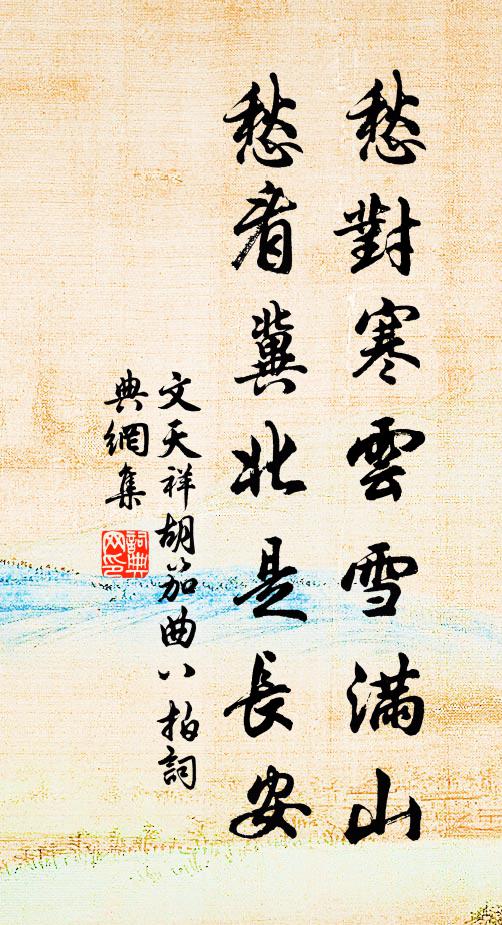 愁對寒雲雪滿山
愁看冀北是長安
文天祥胡笳曲八拍詞
典網集
詞典
网印